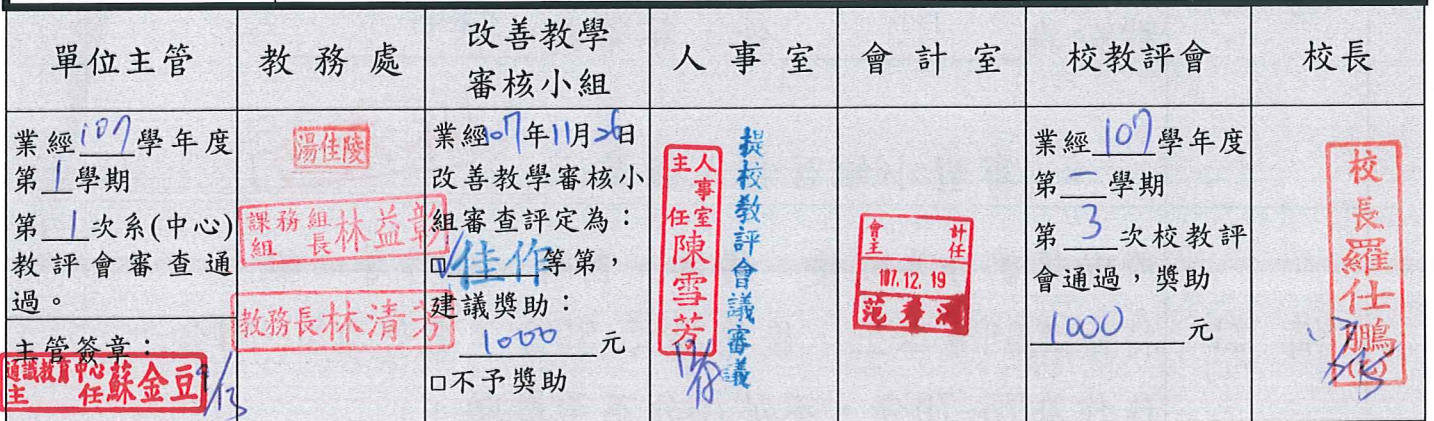 單位主管
教務處
改善教學
審核小組
人事室
會計室
校教評會
校長
業經107學年度
第1學期
第1次系(中心)
教評會審查通
過。
主管簽章:
通識教育中心
主任 蘇金豆
湯佳陵
課務組
組長 林益彰
教務長林清芳
業經107年11月26日
改善教學審核小
組審查評定為:
□佳作等第;
建議獎助:
1000元
□不予獎助
人事室
主任 陳雪芳
提校教評會議審議
會計
主任
107.12.19
范
業經107學年度
第一學期
第3次校教評
會通過,獎助
1000元
校長羅仕鵬